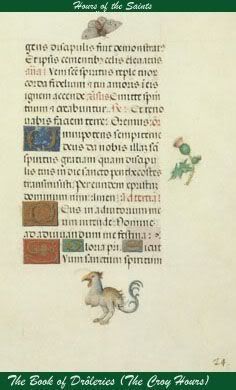 Hours of the Saints
getus discipulis suis demonstrat
Et ipsis cernentibus celis elevatus
Veni sancte spiritus reple tuor
corda fidelium et tui amoris i eis
ignem accende Emitte spiri
tum et creabuntur Et reno
vabis faciem terre Oremus
mnipotens sempiterne
deus da nobis illam sci
spiritus gratiam quam discipu
lis tuis in die sancto penthecostes
transmisisti Per eundem xpristum
dominum nrm ad tertia
Eus in adiutorium me
um intende Domine
ad adiuvandum me festina
loria pri icut
Veni sanctum spiritum
24
The Book of Drôleries (The Croy Hours)